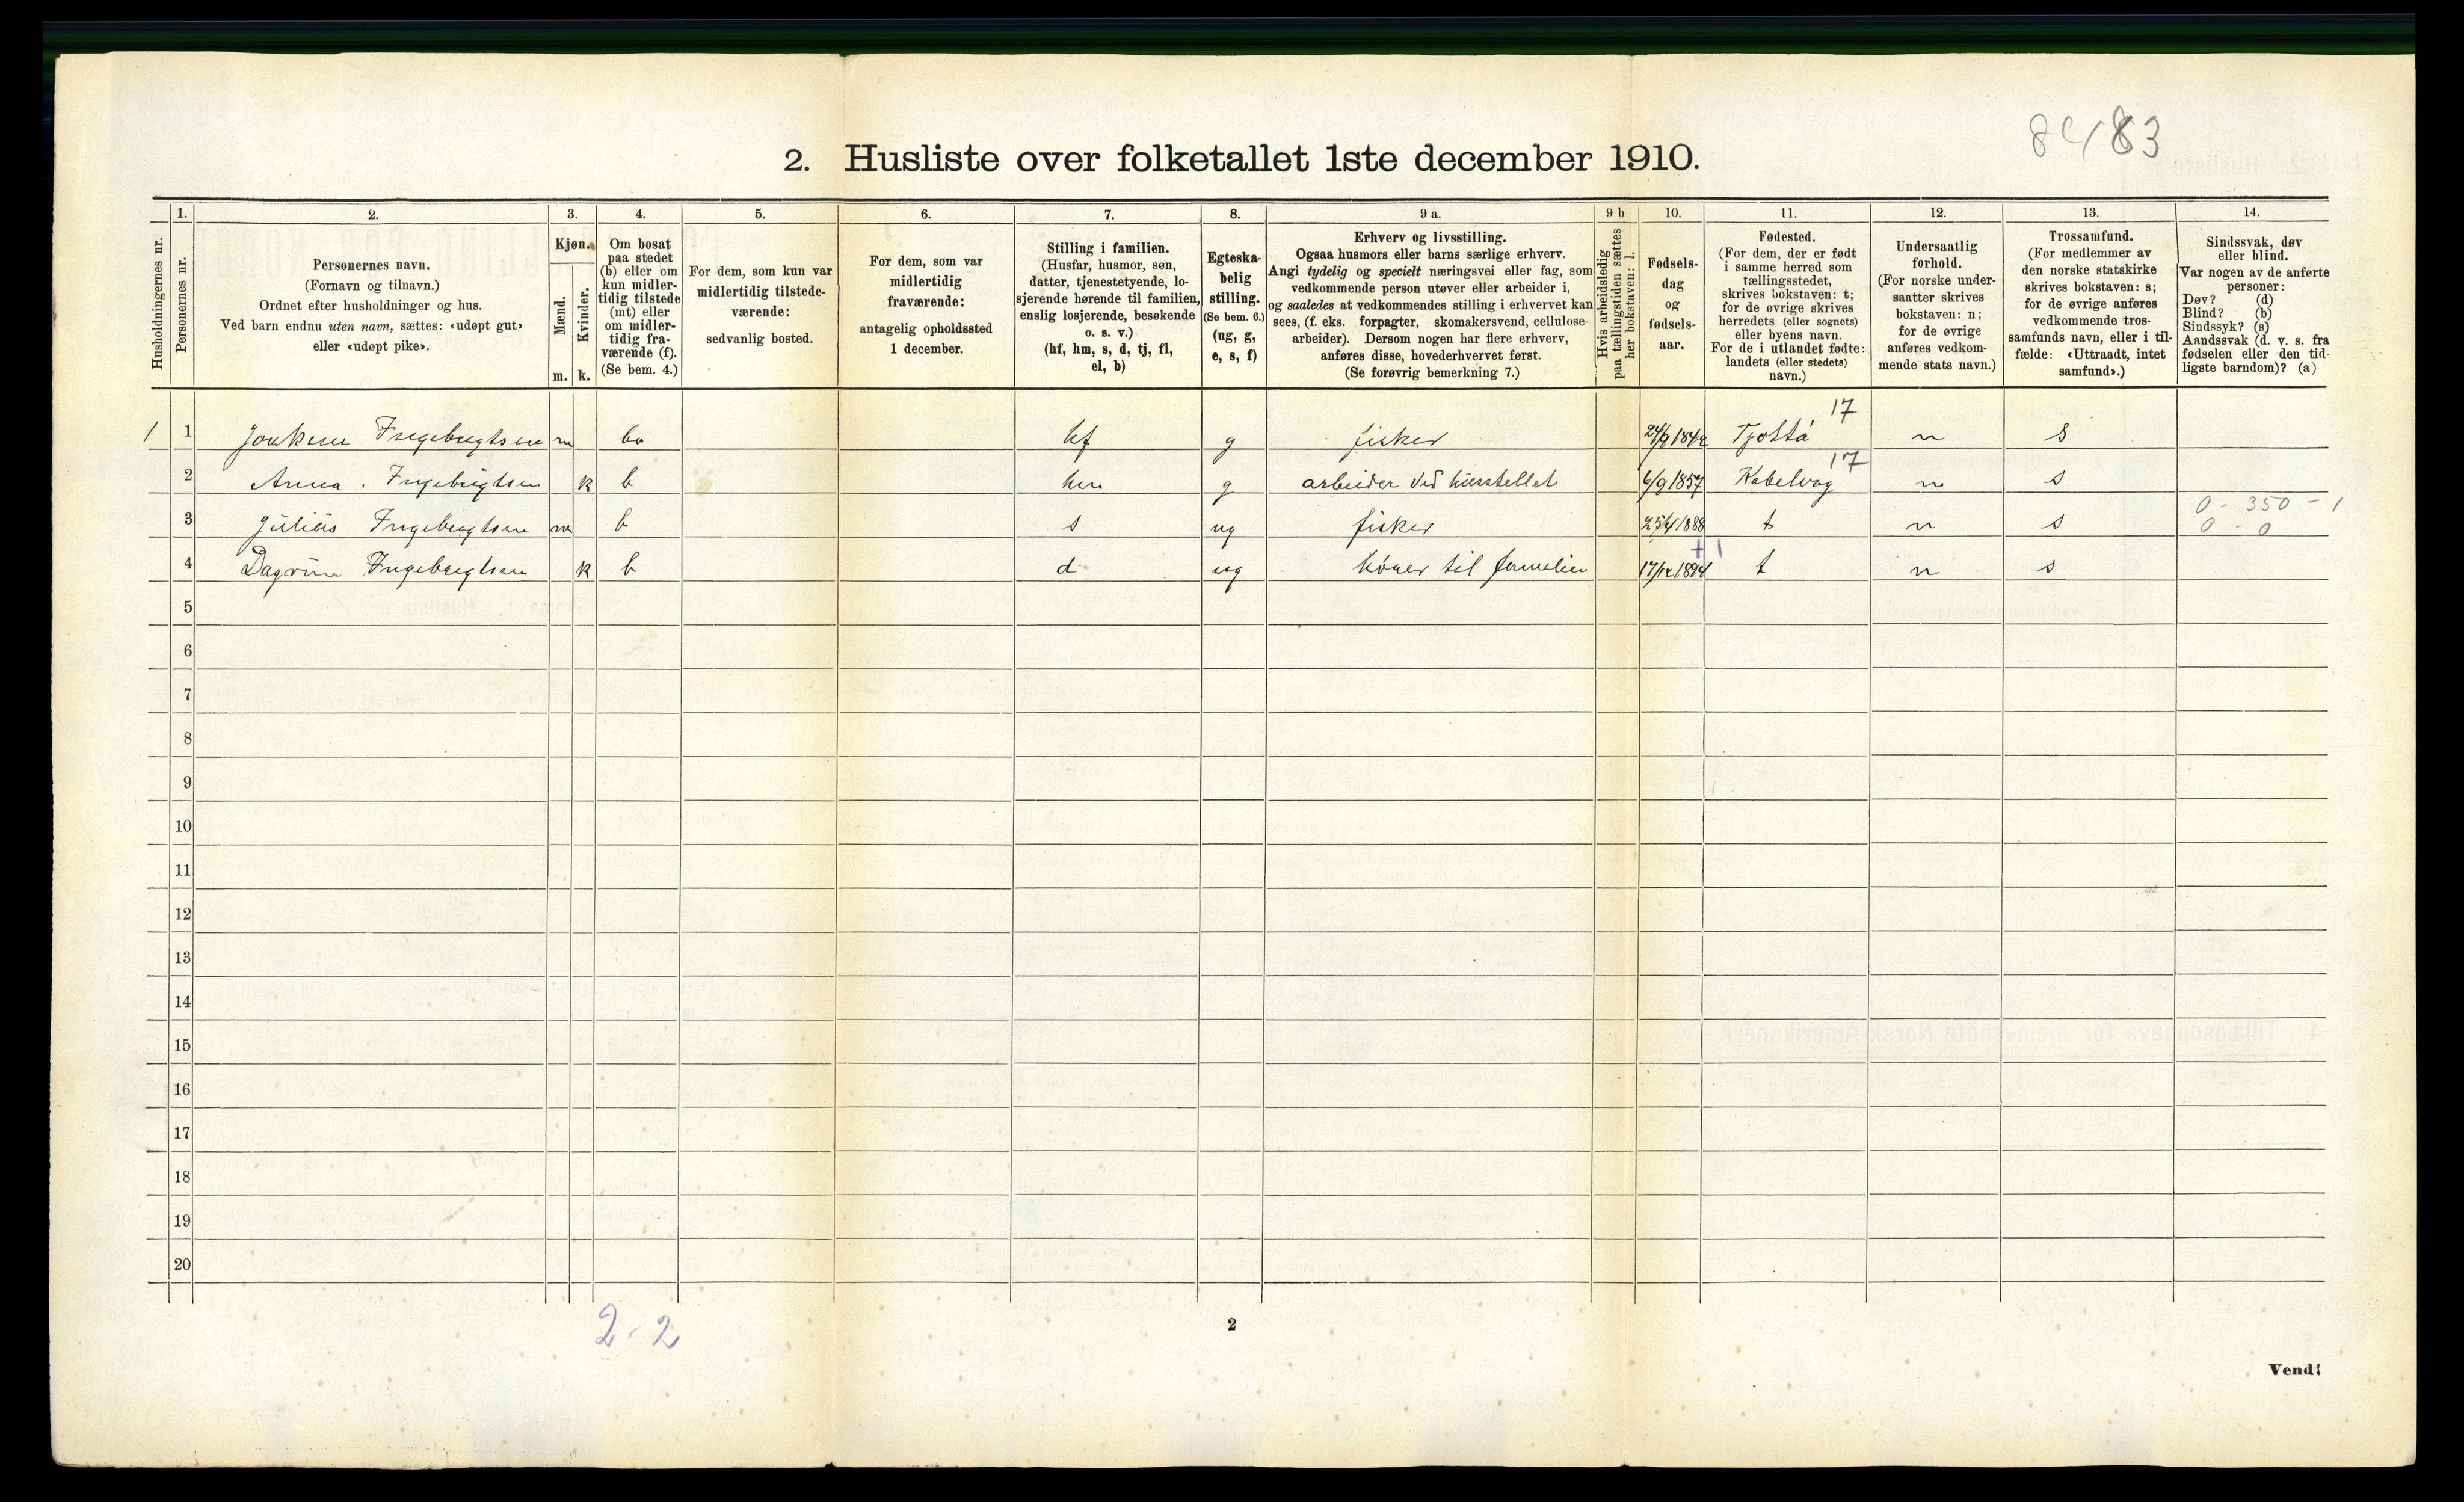 8483
2. Husliste over folketallet 1ste december 1910.
Husholdningernes nr.
1.
Personernes nr.
2.
Personernes navn.
(Fornavn og tilnavn.)
Ordnet efter husholdninger og hus.
Ved barn endnu uten navn, sættes: «udøpt gut»
eller «udøpt pike».
3.
Kjøn.
Mænd.
Kvinder.
m. k.
4.
Om bosat
paa stedet
(b) eller om
kun midler-
tidig tilstede
(mt) eller
om midler-
tidig fra-
værende (f).
(Se bem. 4.)
5.
For dem, som kun var
midlertidig tilstede-
værende:
sedvanlig bosted.
6.
For dem, som var
midlertidig
fraværende:
antagelig opholdssted
1 december.
7.
Stilling i familien.
(Husfar, husmor, søn,
datter, tjenestetyende, lo-
sjerende hørende til familien,
enslig losjerende, besøkende
o. s. v.)
(hf, hm, s, d, tj, fl,
el, b)
8.
Egteska-
belig
stilling.
(Se bem. 6.)
(ug, g,
e, s, f)
9 a.
Erhverv og livsstilling.
Ogsaa husmors eller barns særlige erhverv.
Angi tydelig og specielt næringsvei eller fag, som
vedkommende person utøver eller arbeider i,
og saaledes at vedkommendes stilling i erhvervet kan
sees, (f. eks. forpagter, skomakersvend, cellulose-
arbeider). Dersom nogen har flere erhverv,
anføres disse, hovederhvervet først.
(Se forøvrig bemerkning 7.)
9 b
Hvis arbeidsledig
paa tællingstiden sættes
her bokstaven: l.
10.
Fødsels-
dag
og
fødsels-
aar.
11.
Fødested.
(For dem, der er født
i samme herred som
tællingsstedet,
skrives bokstaven: t;
for de øvrige skrives
herredets (eller sognets)
eller byens navn.
For de i utlandet fødte:
landets (eller stedets)
navn.)
12.
Undersaatlig
forhold.
(For norske under-
saatter skrives
bokstaven: n;
for de øvrige
anføres vedkom-
mende stats navn.)
13.
Trossamfund.
(For medlemmer av
den norske statskirke
skrives bokstaven: s;
for de øvrige anføres
vedkommende tros-
samfunds navn, eller i til-
fælde: «Uttraadt, intet
samfund».)
14.
Sindssvak, døv
eller blind.
Var nogen av de anførte
personer:
Døv? (d)
Blind? (b)
Sindssyk? (s)
Aandssvak (d. v. s. fra
fødselen eller den tid-
ligste barndom)? (a)
17
1 1 Ingebregtsen m hf g fisker Tjøttå n s
17
2 Anna. Ingebrigtsen k b hm g arbeider ved husstellet 6/9 1857 Kabelvag n s
0 - 350 - 1
3 Julius Ingebregtsen m b s ug fisker 1888 t n s 0 - 0
4 Dagrun Ingebregtsen k b d ug hører til familien 17/12 1894 t n s
5
6
7
8
9
10
11
12
13
14
15
16
17
18
19
20
2 - 2
2
Vend!